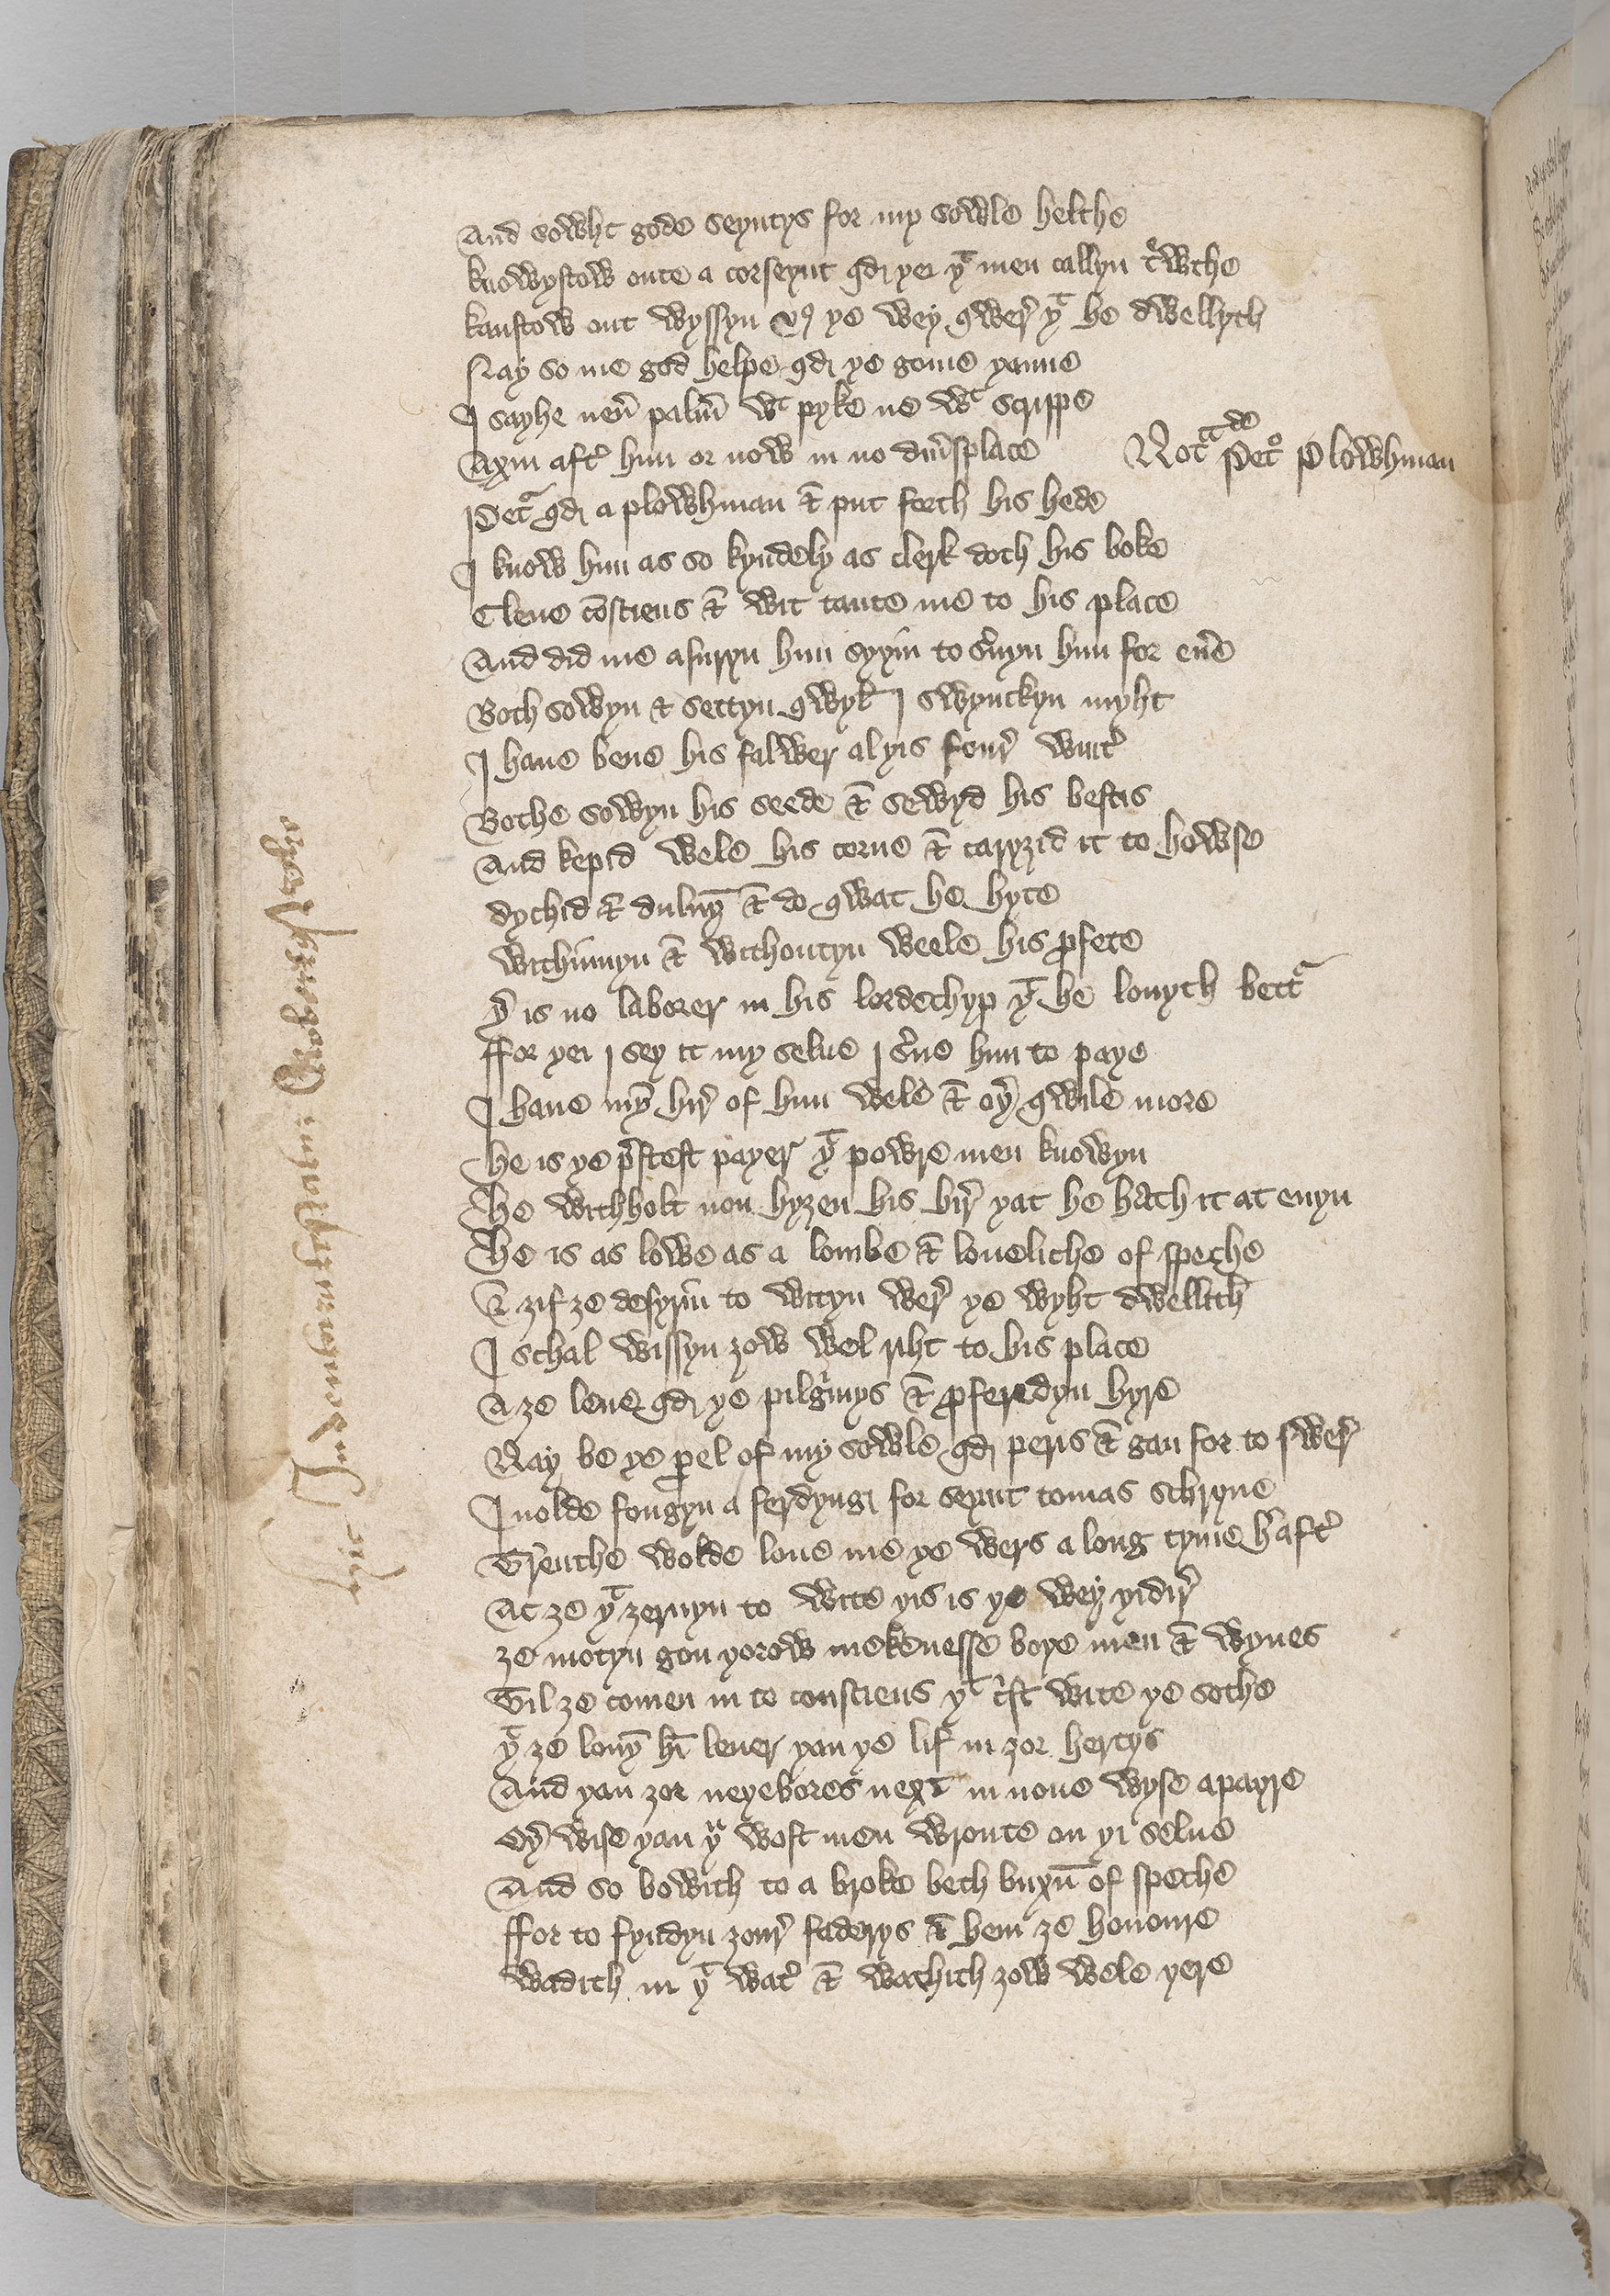 And sowht gode seyntys for my sowle helthe
knowystow oute a corseynt qd yei yͭ men callyn trͤwthe
kanstow out wyssyn vs ye wey qwer̕ yͭ he dwellyth
Nay so me god helpe qd ye gome yanne
I sayhe neu̕ palm̕ wͭ pyke ne wͭ scrippe
Axin aft̕ hym or now in no diu̕splace
Notͣ de Petͦ Plowhman
Petͬ qd a plowhman & put forth his hede
I know hym as so kyndely as clerk doth his boke
Clene cōsciens & wit taute me to his place
And did me asuryn hym syyin to s̕uyn hym for eu̕e
Both sowyn & settyn qwyl I swynckyn myht
I haue bene his falwer al yis four̕ wint̕
Bothe sowyn his seede & sewyd his bestis
And kepid wele his corne & caryzid it to howse
dychid & duluyn̄ & do qwat he hyte
withinnyn & withoutyn weele his ꝓfete
y̕ is no laborer in his lordechyp yͭ he louyth bettͬ
ffor yei I sey it my selue I s̕ue hym to paye
I haue myn̄ hir̕ of hym wele & oy̕ qwile more
he is ye p̕stest payer yͭ powre men knowyn
he withholt non hyzen his hir̕ yat he hAth it at euyn
he is as lowe as a lombe & loueliche of speche
& zif ze desyrin to wityn wer̕ ye wyht dwellith
I schal wissyn zow wel riht to his place
A ze leue qd ye pilgͥmys & ꝓferedyn hyre
Nay be ye ꝑel of my sowle qd peris & gan for to swer̕
I nolde fongyn a ferdyng for seynt tomas schryne
Treuthe wolde loue me ye wers a long tyme h̕aft̕
Ac ze yͭ zernyn to wite yis is ye wey yidir̕
ze motyn gon yorow mekenesse boye men & wyues
Til ze comen in to consciens yͭ c̕st wite ye sothe
yͭ ze louyn̄ hī leuer yan ye lif in zor hertys
And yan zor neyebores next in none wyse apayre
Oy̕ wise yan yͧ wost men wroute on yi selue
And so bowith to a broke beth buxū of speche
ffor to fyndyn zour̕ faderys & hem ze honoure
wadith in yͭ wat̕ & wachith zow wele yere